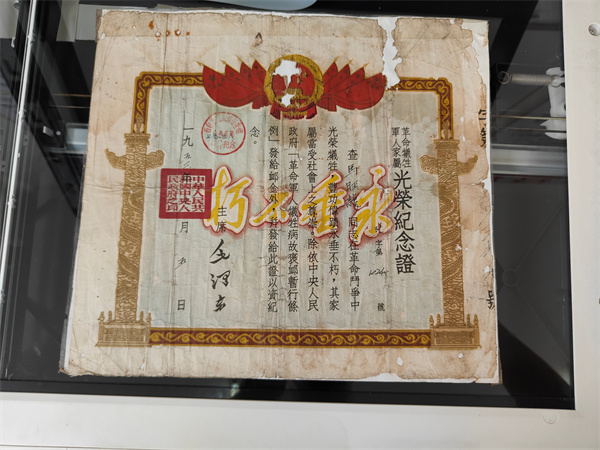 革命犧牲
軍人家屬
光榮紀念證
字第 號
查 同志在革命鬥爭中
光榮犧牲,豐功偉績永垂不朽,其家
屬當受社會上之尊崇。除依中央人民
政府「革命軍人犧牲病故褒卹暫行條
例」發給卹金外,並發給此證以資紀
念。
主席
毛澤東
一九五 年 月 日
中華人民共
和國中央人
民政府之印
永垂不朽